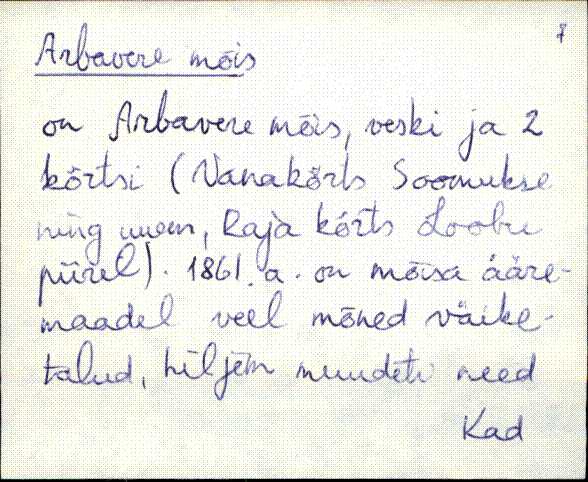 7
Arbavere mõis
on Arbavere mõis, veski ja 2
kõrtsi (Vanakõrts Soomukse
ning uuem, Raja kõrts Loobu
piirel). 1861. a. on mõisa ääre-
maadel veel mõned väike-
talud, hiljem muudeti need
Kad